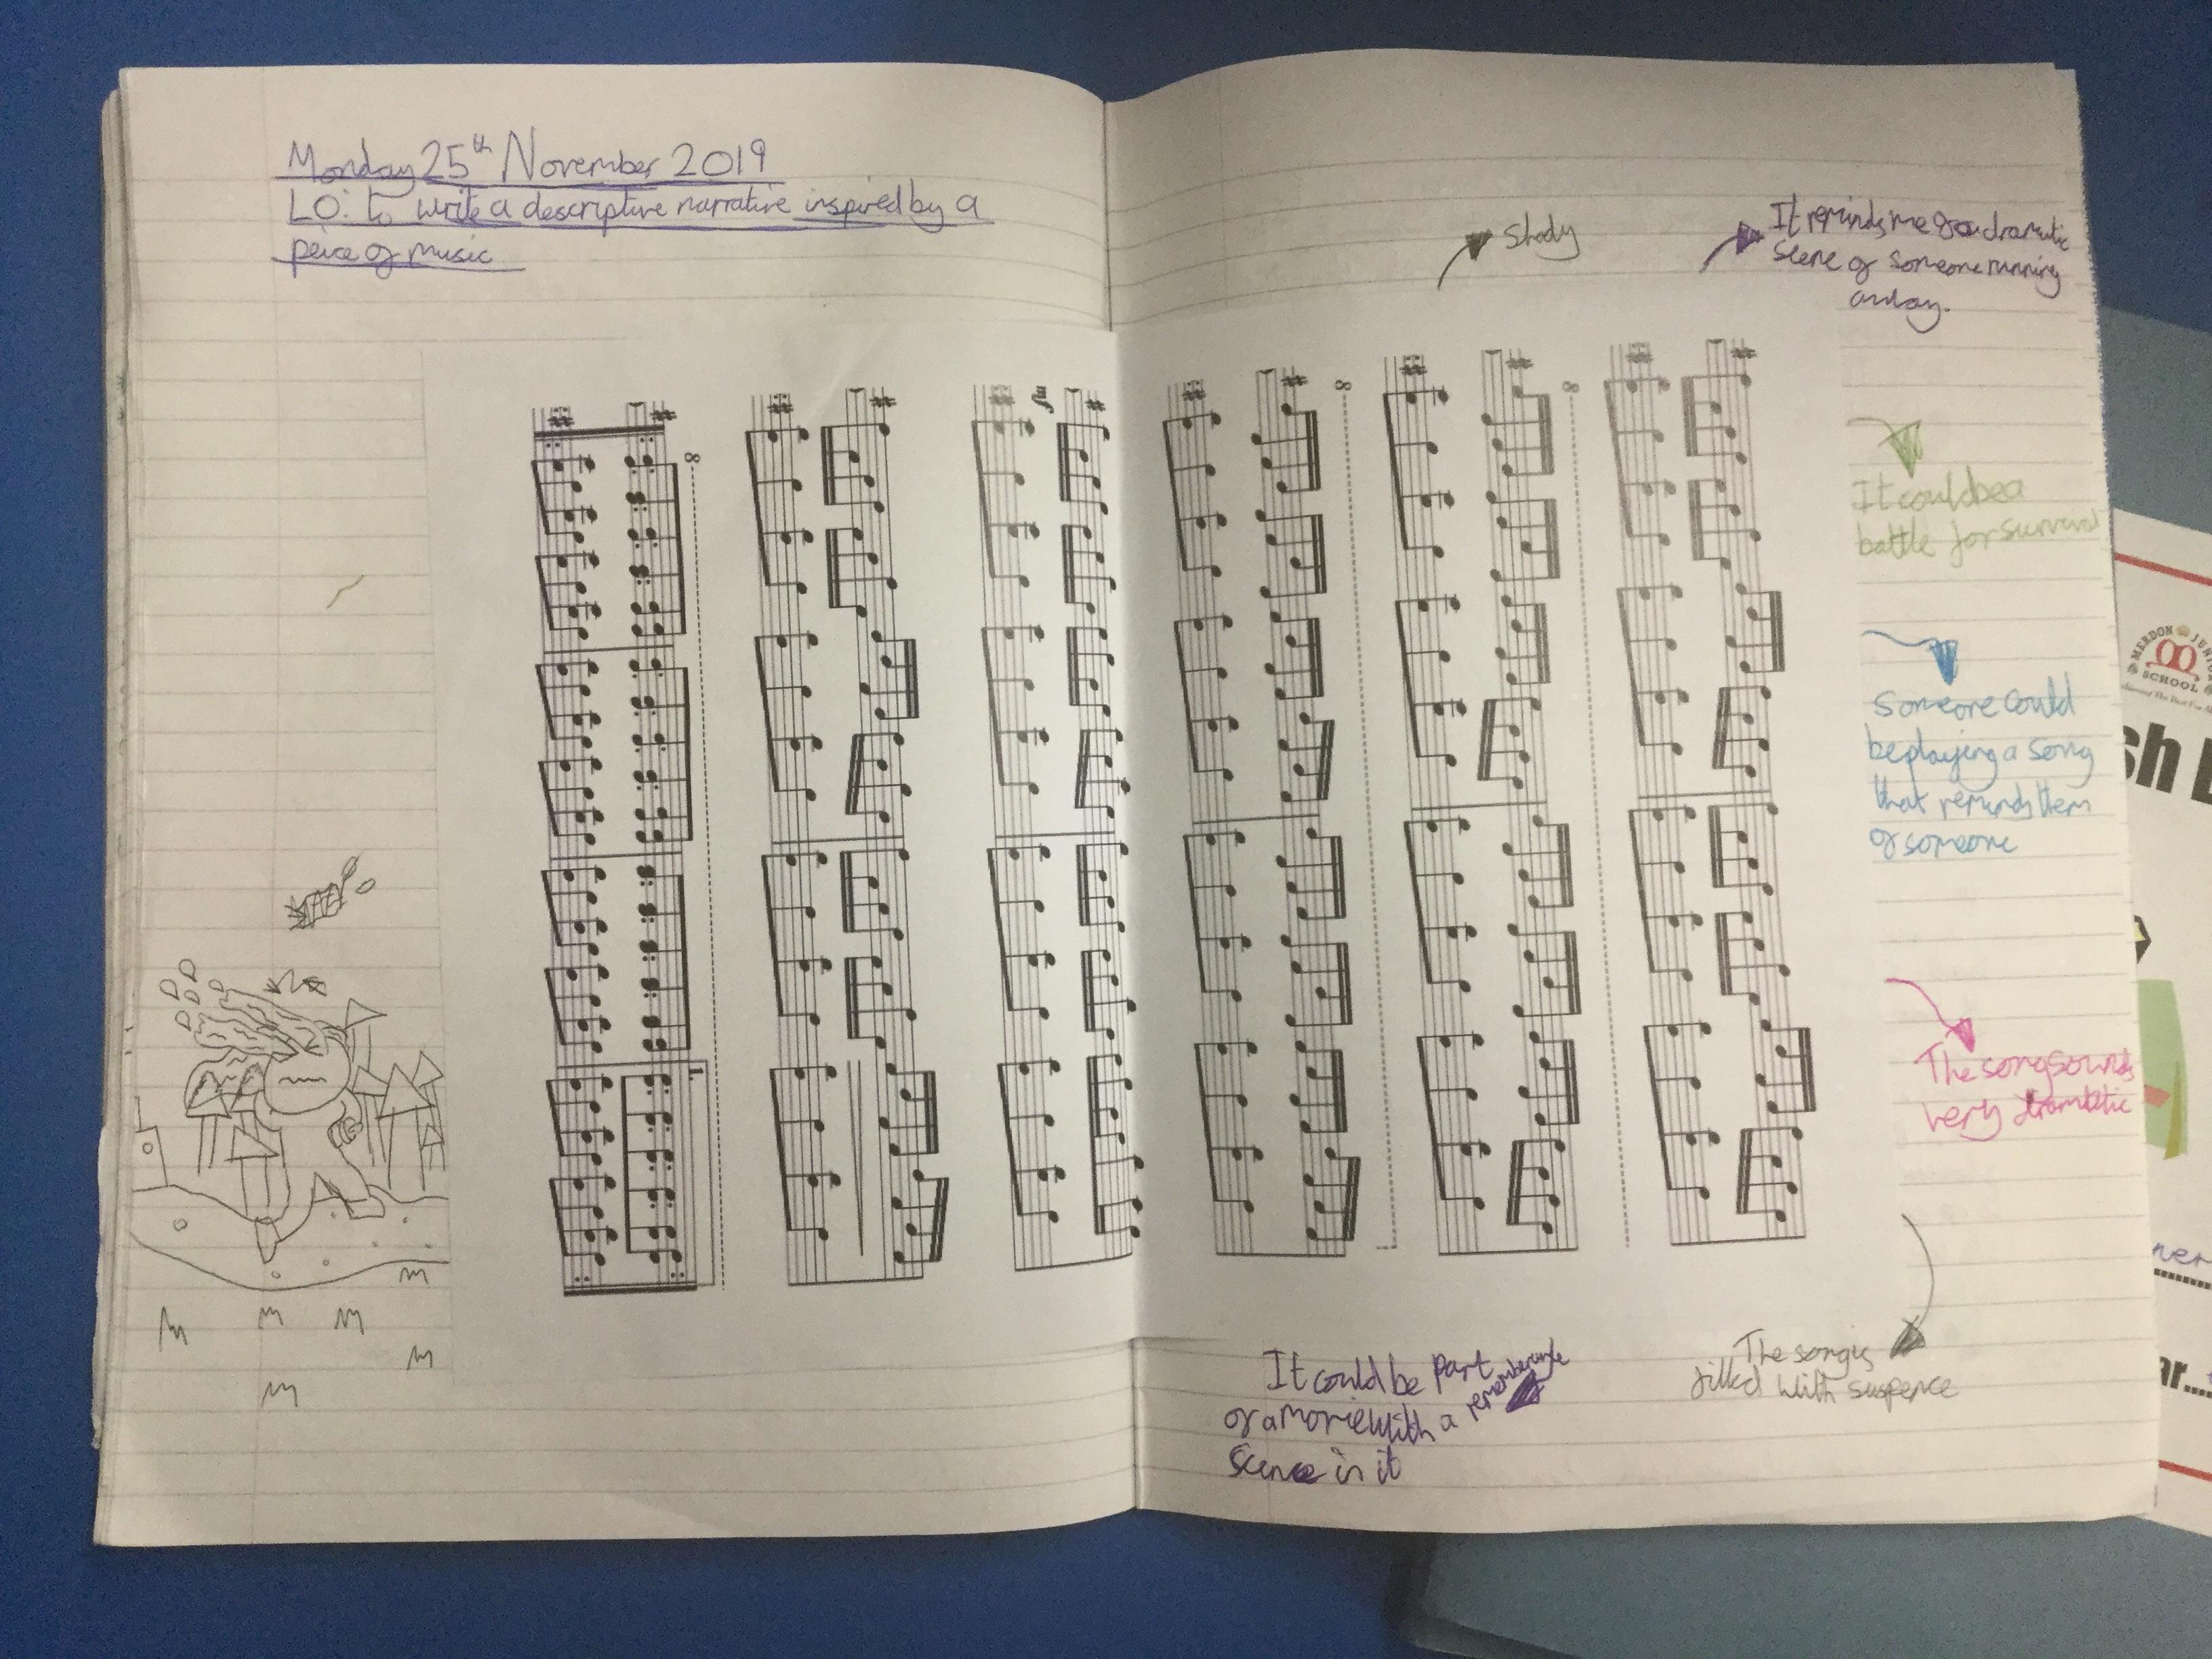 Monday 25th November 2019
LO: to write a descriptive narrative inspired by a
peice of music
Shady
It reminds me of a dramatic
scene of someone running
away.
It could be a
battle for survival
Someone could
be playing a song
that reminds them
of someone
The song sounds
very dramatic
The song is
filled with suspence
It could be part
of a movie with a
scene in it
8
8
8
1
MERDON JUNIOR
SCHOOL
sh
ner
ar....